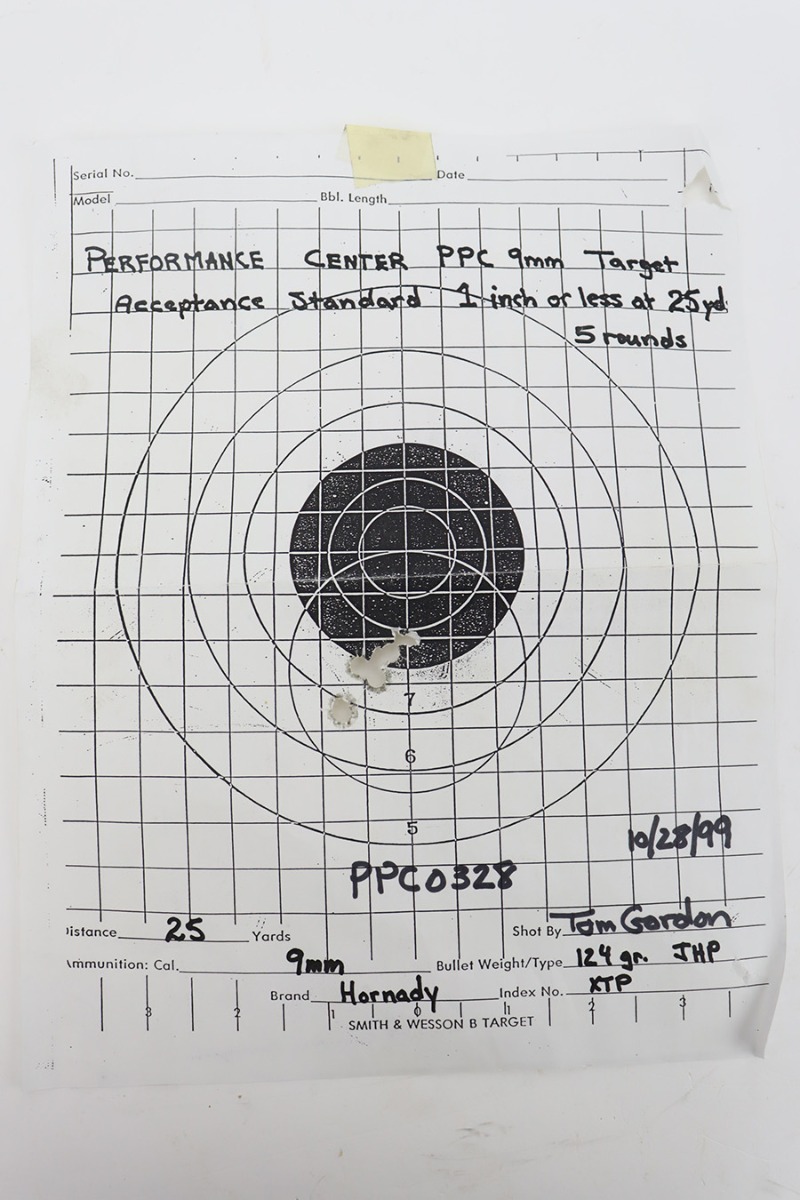 Serial No. Date
Model Bbl. Length
PERFORMANCE CENTER PPC 9mm Target
Acceptance Standard 1 inch or less at 25yd.
5 rounds
7
6
5
10/28/99
PPC0328
istance 25 Yards Shot By Tom Gordon
mmunition: Cal. 9mm Bullet Weight/Type 124 gr. JHP
Brand Hornady Index No. XTP
3 2 1 0 1 2 3
SMITH & WESSON B TARGET